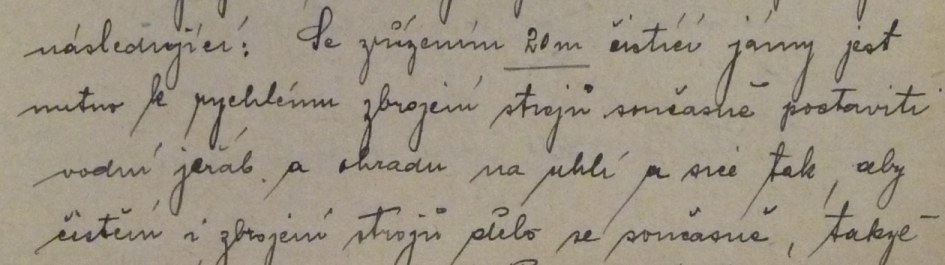 následující: Se zřízením 20m čistící jámy jest
nutno k rychlému zbrojení strojů současně postaviti
vodní jeřáb a ohradu na uhlí a sice tak, aby
čistění i zbrojení strojů dělo se současně, takže